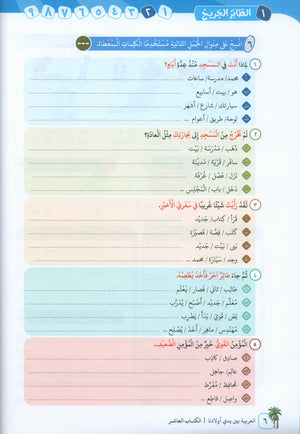 ١ الطَّائِرُ الجَرِيحُ ١ ٢ ٣ ٤ ٥ ٦ ٧ ٨ ٩
٦ انْسِجْ عَلى مِنْوالِ الجُمَلِ التّالِيَةِ مُسْتَخْدِمًا الكَلِماتِ المُعْطاة.
١ لِمَاذا أَنْتَ في المَسْجِدِ مُنْذُ عِدَّةِ أَيّامٍ؟
محمد/ مدرسة/ ساعات
هو / بيت / أسابيع
سيارتك / شارع / أشهر
لوحة/ طريق / أعوام ...
٢ لَمْ تَخْرُجْ مِنَ المَسْجِدِ إلى تِجارَتِكَ مِثْلَ العادَةِ؟
ذَهَبَ / مَدْرَسَة / بَيْت
سافَرَ / قَرْيَة / مَدينَة
نَزَلَ / فَصْل / غُرْفَة
دَخَلَ / باب / المَجْلِس ...
٣ لَقَدْ رَأَيْتُ شَيْئًا غَرِيبًا في سَفَرِي الأَخيرِ.
قَرَأَ / كِتاب/ جَديد
كَتَبَ / قِصَّة / قَصيرَة
بَنى / بَيْت / جَديد
وجد / سَيّارَة / محمد ...
٤ ثُمَّ جاءَ طائِرٌ آخَرُ فَأَخَذَ يُطْعِمُهُ.
طالِب / ثاني / صَار / يُعَلِّم
مُعَلِّم / جَديد / أَصْبَحَ / يُدَرِّب
لِصّ / قَوِيّ / بَدَأَ / يَضْرِب
مُهَنْدِس / ماهِر / أَخَذَ / يُصْلِح ...
٥ المُؤْمِنُ القَوِيُّ خَيْرٌ مِنَ المُؤْمِنِ الضَّعيفِ.
صادِق / كاذِب
عالِم/ جاهِل
مُحافِظ / مُفَرِّط
واصِل / قاطِع ...
٦ العربية بين يدي أولادنا | الكتاب العاشر